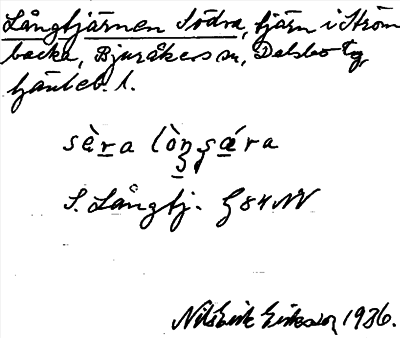 Långtjärnen Södra, tjärn i Ström
backa, Bjuråkers sn, Delsbo tg,
Häuteb. l.
sèra lòŋʂǽra
S. Långtj. G84NV
Nils Erik Eriksson 1936.